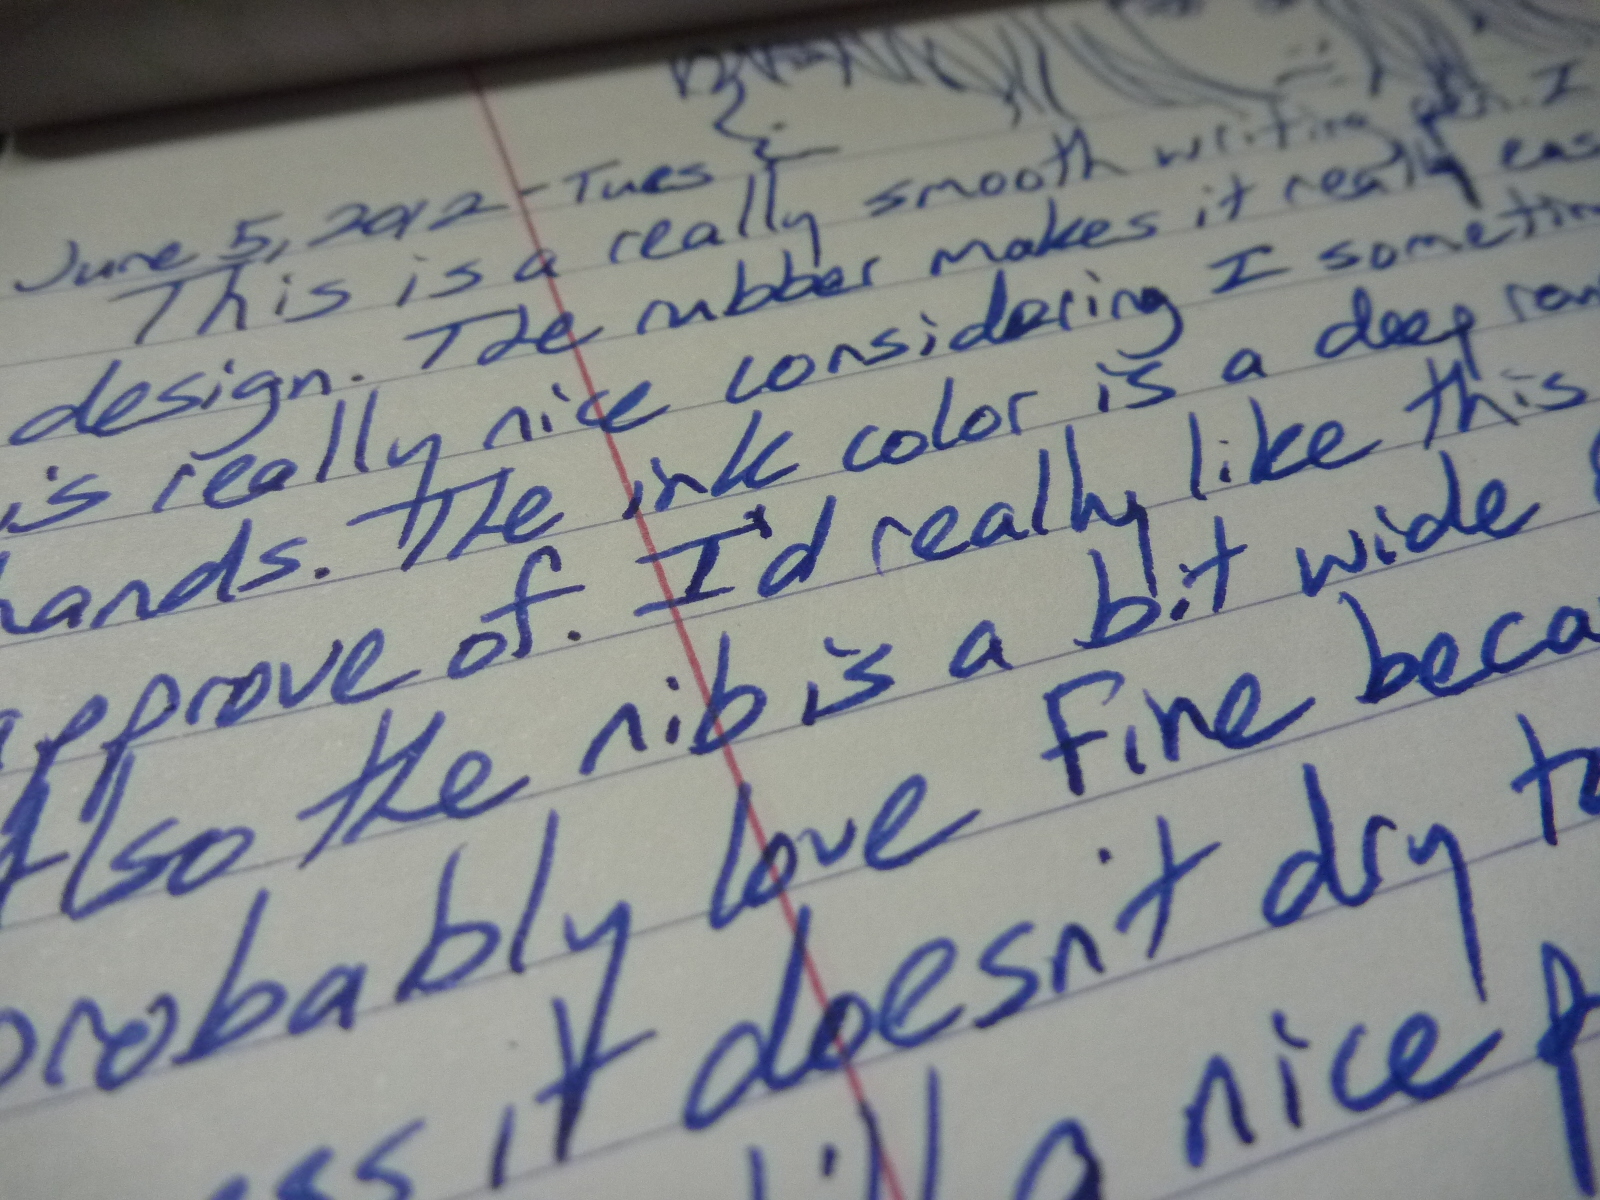 June 5, 2012 - Tues
This is a really smooth writing pen. I
design. The rubber makes it really
is really nice considering I
hands. The ink color is a deep
approve of. I'd really like this
Also the nib is a bit wide
probably love Fine
it doesn't dry
a nice